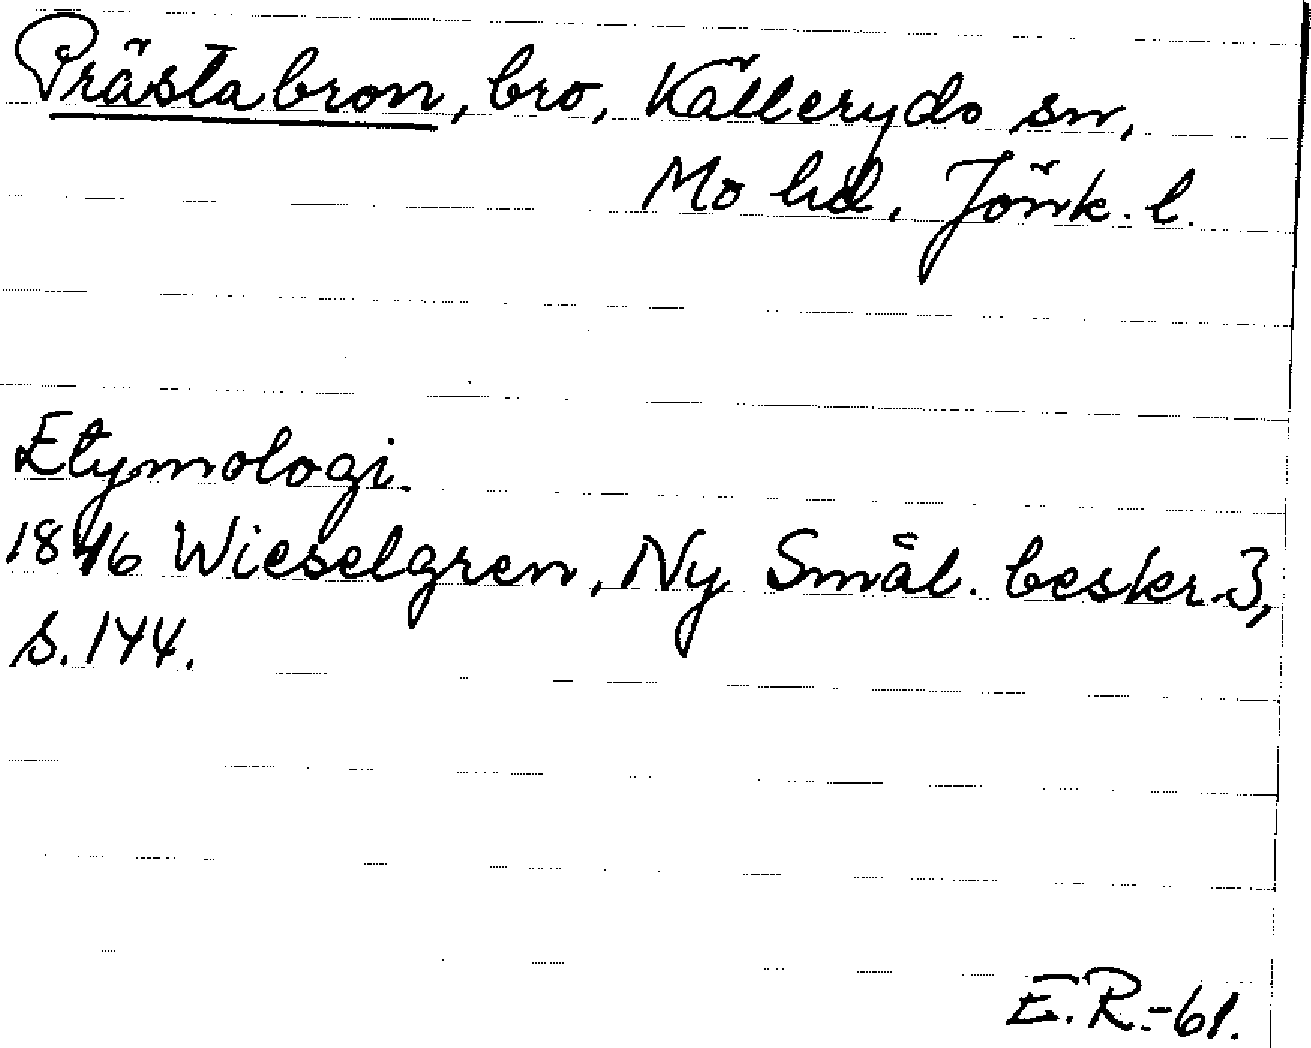 Prästabron, bro, Källeryds sn,
Mo hd, Jönk. l.
Etymologi.
1846 Wieselgren, Ny Smål. beskr. 3,
s. 144.
E.R.-61.